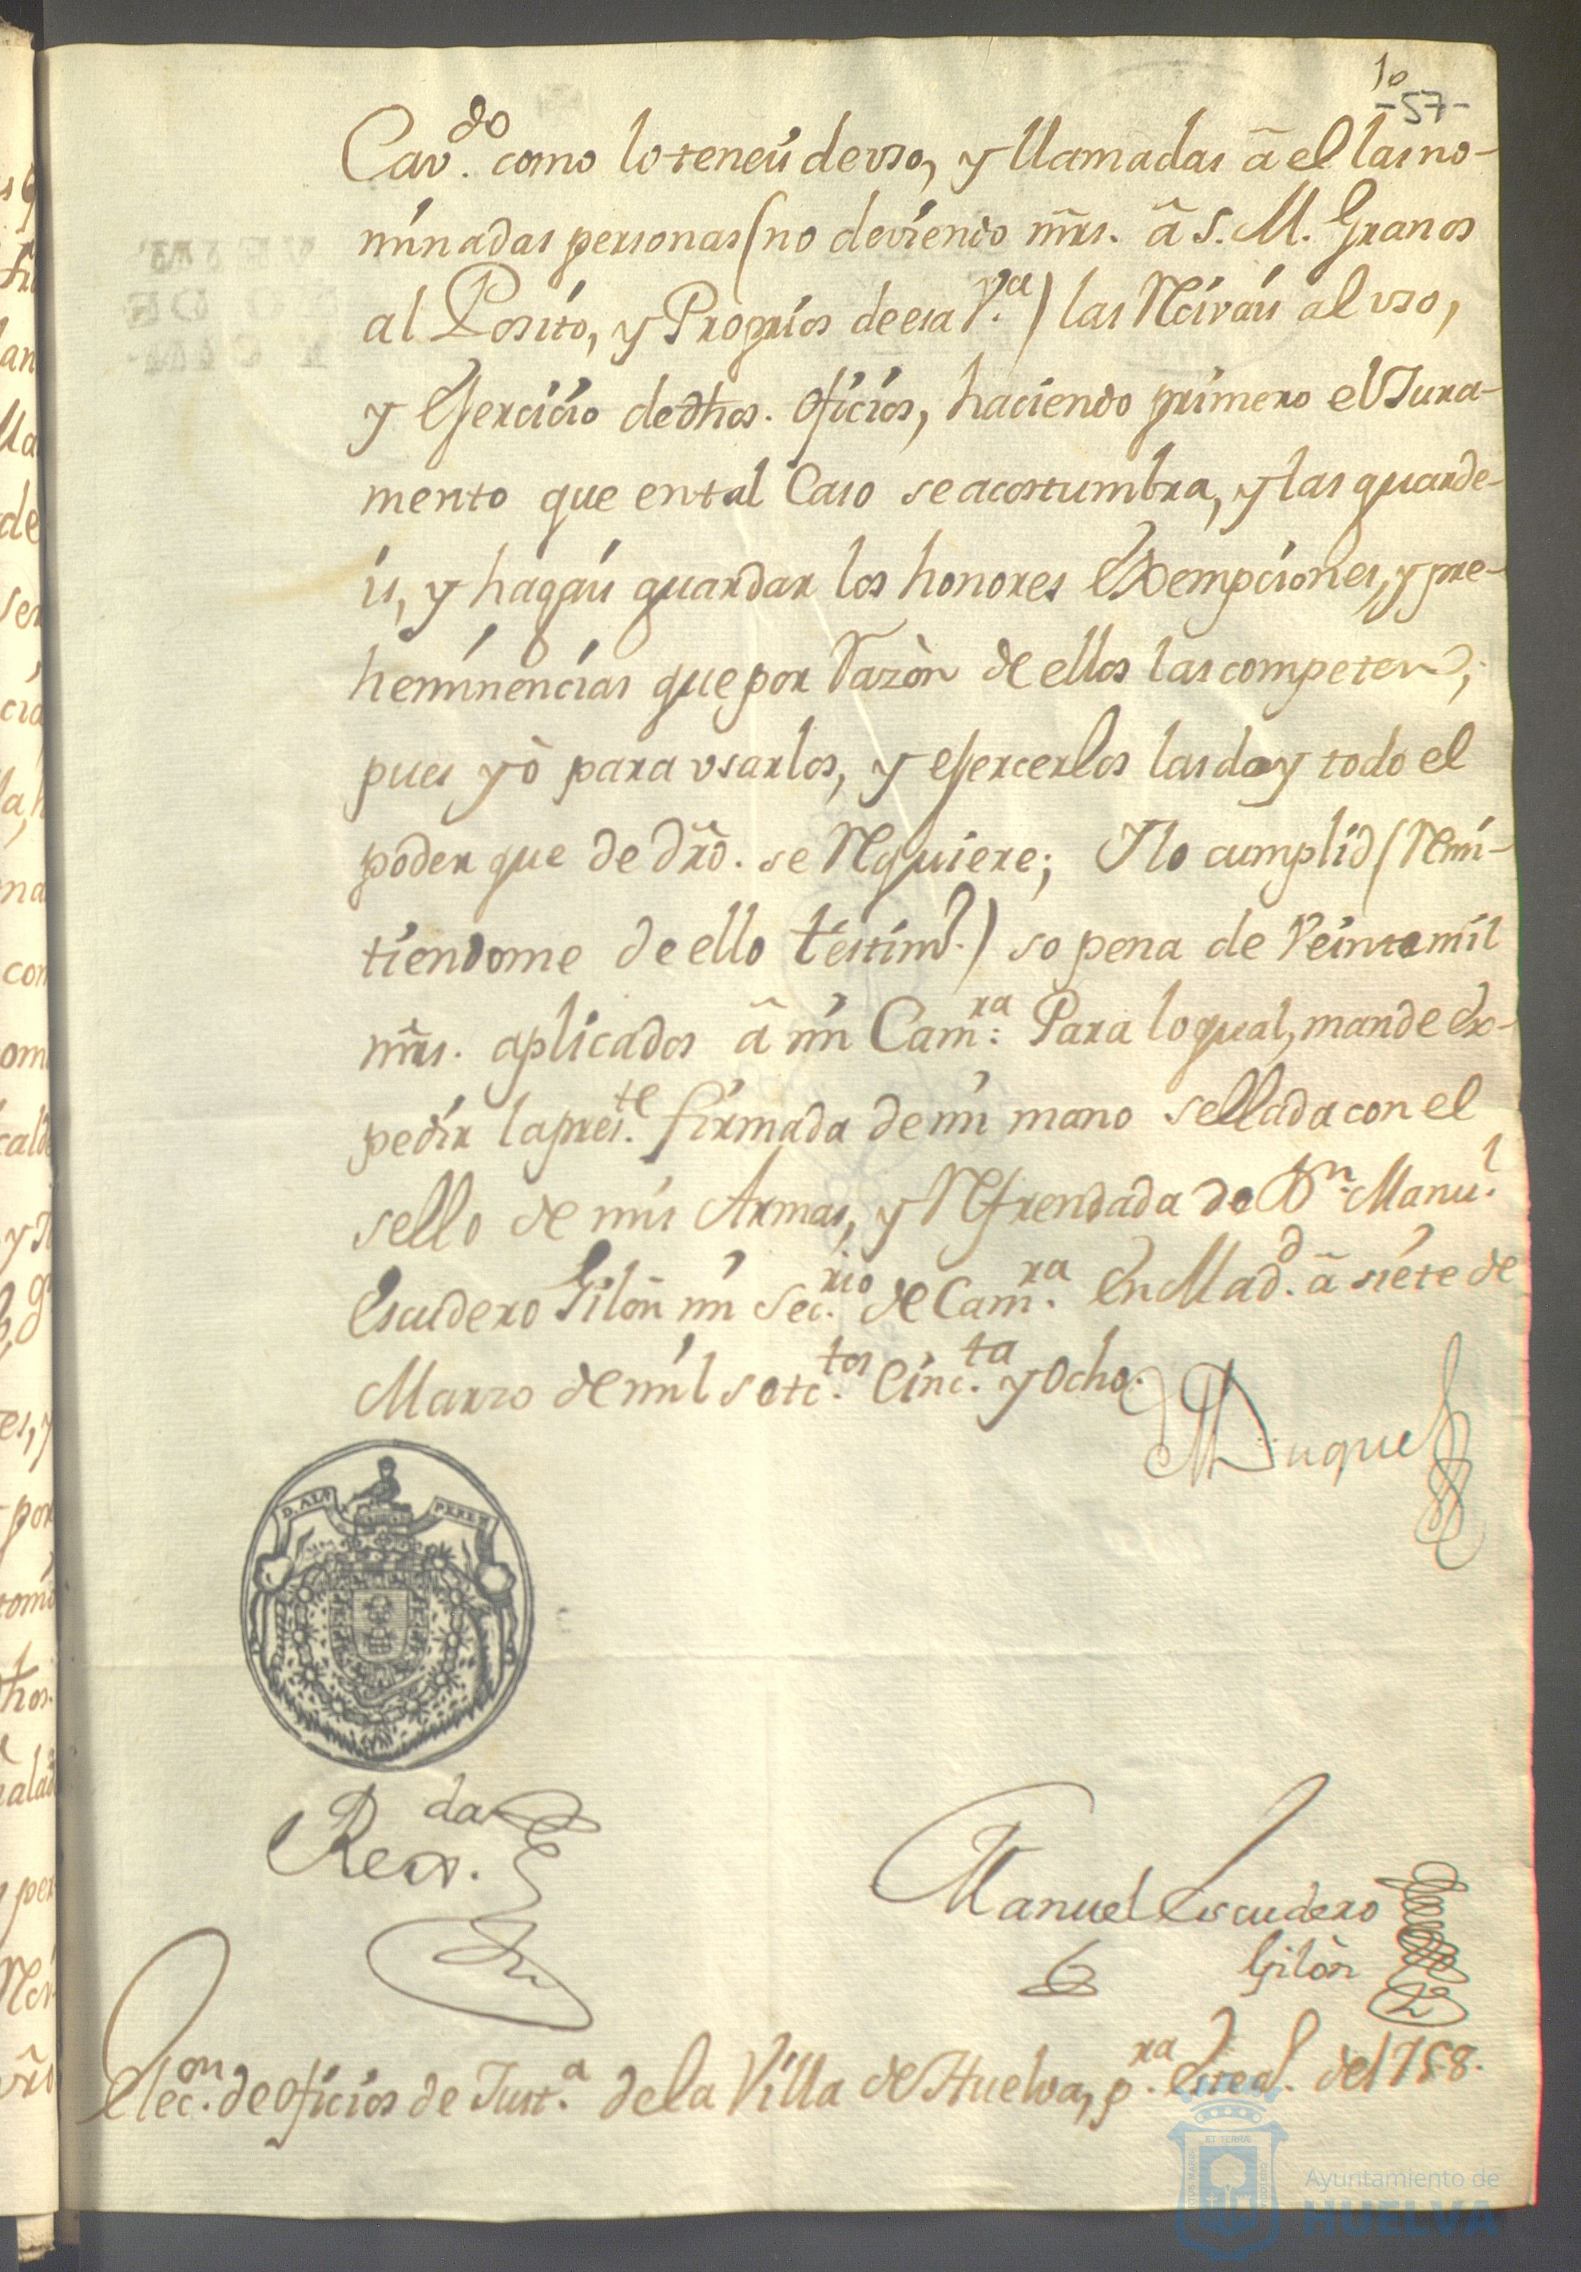 10
-57-
Cav.do como lo teneis de vso, y llamadas â el las no-
minadas personas (no deviendo mrs. â S. M. Granos
al Posito, y Proprios de esa V.a) las Rcivais al vso,
y Exercicio de dhos. oficios, haciendo primero el Jura-
mento que en tal Caso se acostumbra, y las guarde-
is, y hagais guardar los honores Exempciones, y pre-
heminencias que por Razòn de ellos las competen;
pues yò para vsarlos, y exercerlos las doy todo el
poder que de dro. se Rquiere; Y lo cumplid (Rmi-
tiendome de ello testimo.) so pena de Veinte mil
mrs. aplicados â mi Cam.ra Para lo qual, mande ex-
pedir la pres.te firmada de mi mano sellada con el
sello de mis Armas, y Rfrendada de Dn. Manu.l
Escudero Gilòn mi Sec.rio de Cam.ra En Mad.d â siete de
Marzo de mil setc.tos Cinc.ta y Ocho.
Duque
D. ALA
PEREZ
Rex.da
Manuel Escudero
Gilòn
Elec.on de oficios de Just.a de la Villa de Huelva, p.ra este a. de 1758.
ET TERRÆ
Ayuntamiento de
HUELVA